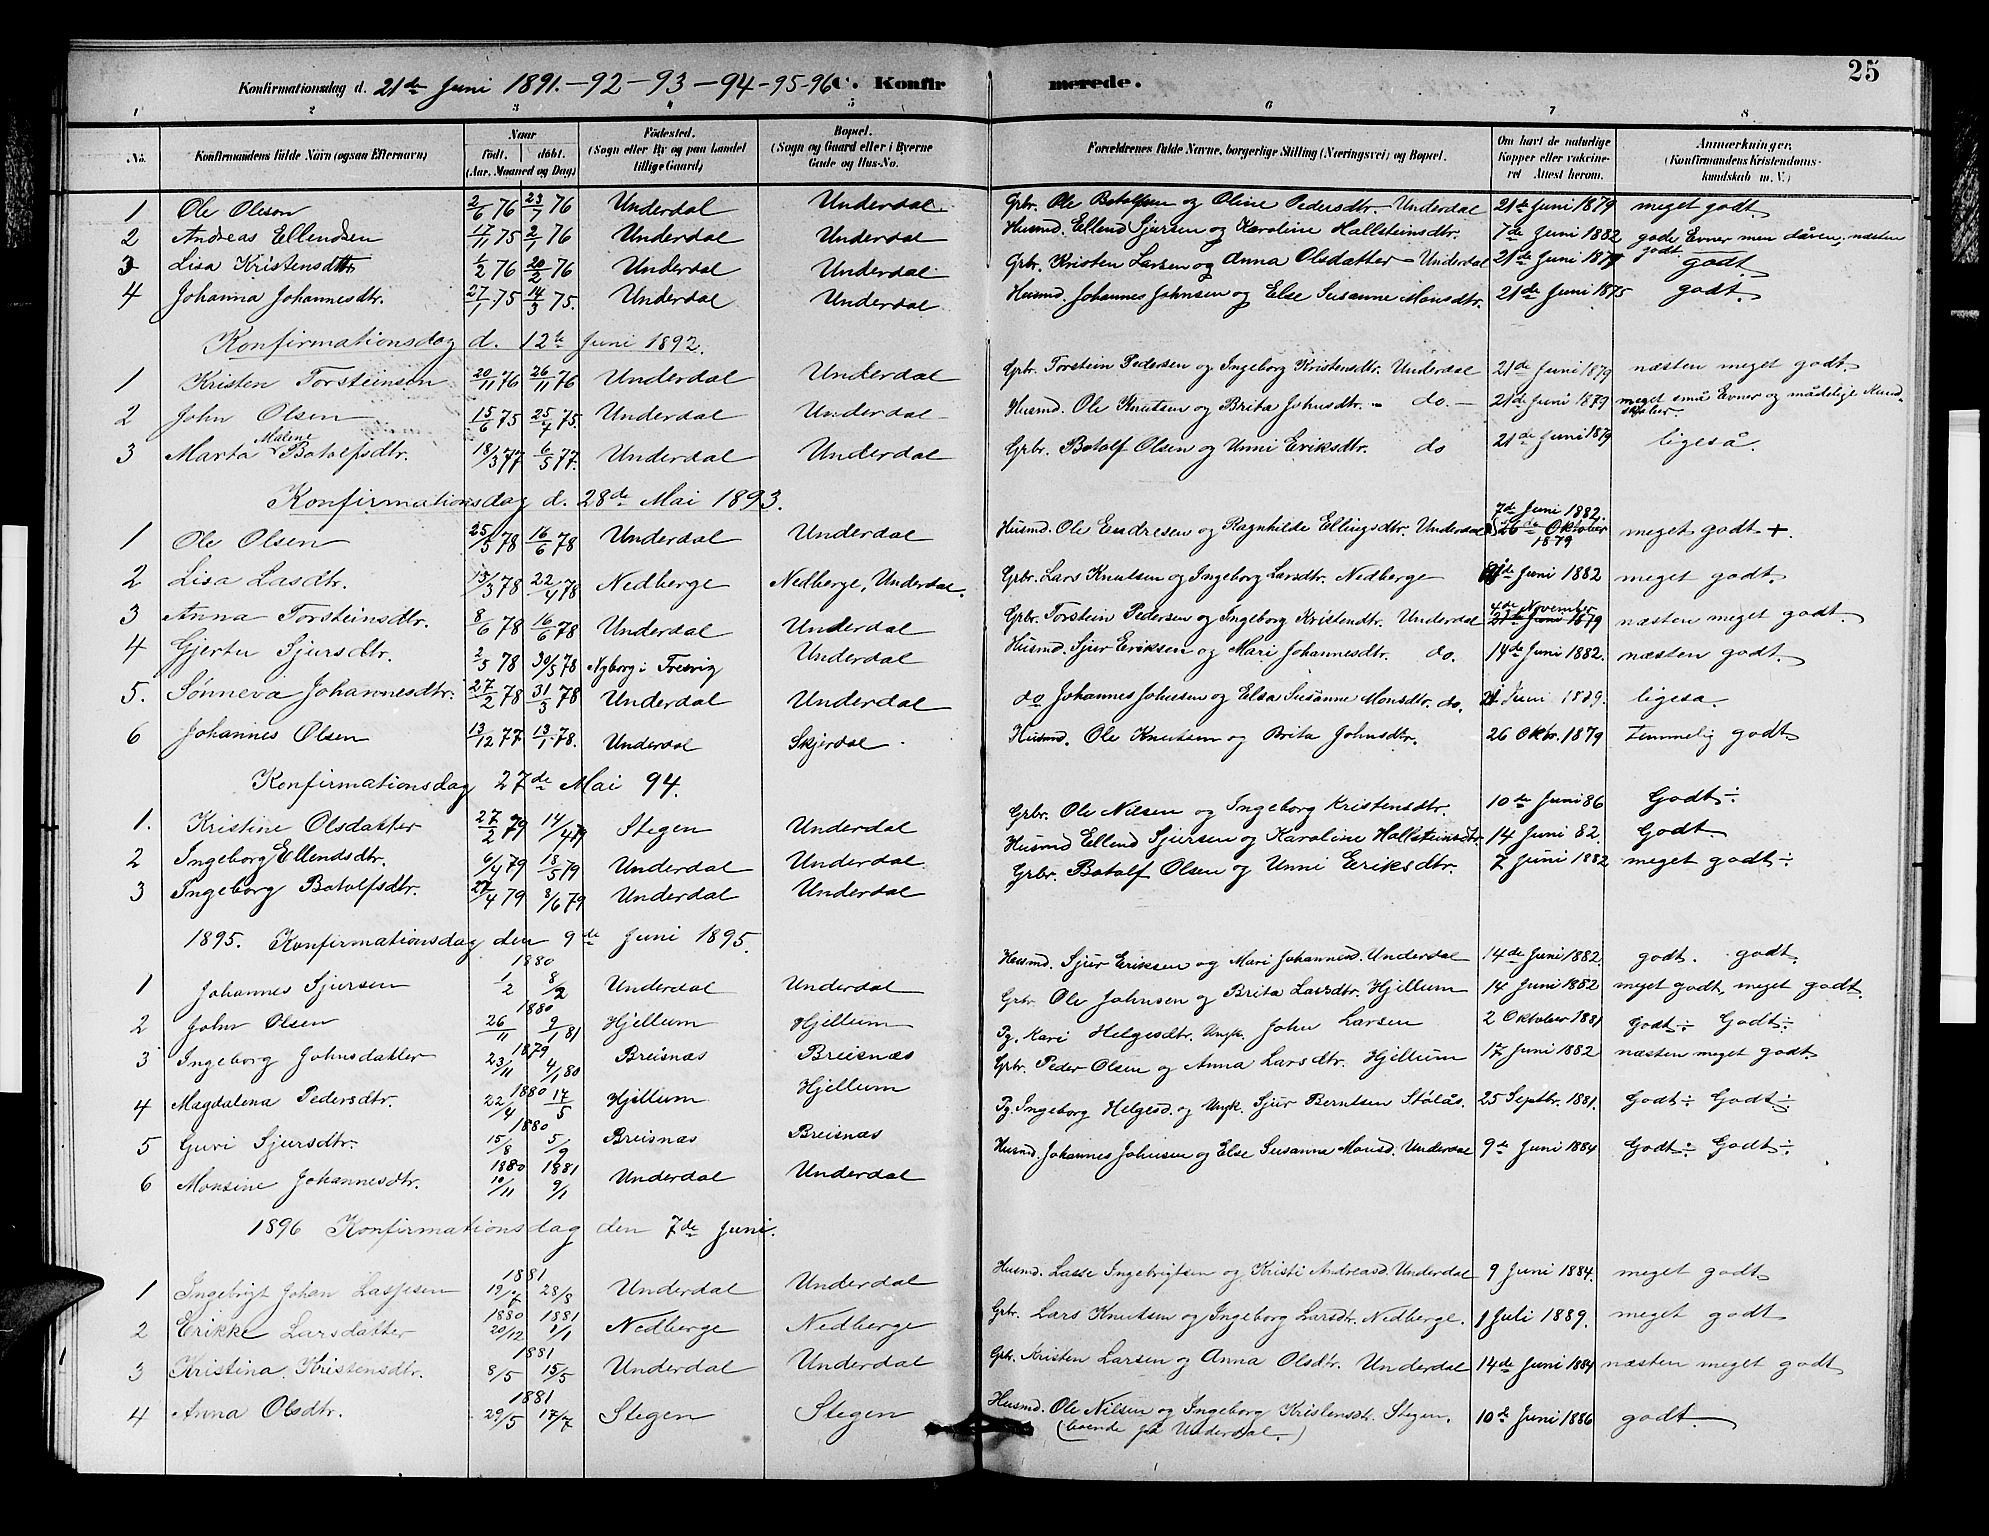 25
Konfirmationsdag d. 21de Juni 1891.-92-93-94-95-96 C. Konfirmerede.
1 2 3 4 5 6 7 8
No. Konfirmandens fulde Navn (ogsaa Efternavn) Naar født. døbt. (Aar, Maaned og Dag) Fødested. (Sogn eller By og paa Landet tillige Gaard) Bopæl. (Sogn og Gaard eller i Byerne Gade og Hus-No. Forældrenes fulde Navne, borgerlige Stilling (Næringsvei) og Bopæl. Om havt de naturlige Kopper eller vakcineret Attest herom. Anmærkninger. (Konfirmandens Kristendomskundskab m. V.)
1 Ole Oleson 2/6 76 23/7 76 Underdal Underdal Grbr. Ole Botolfsen og Oline Pedersdtr. Underdal 21de Juni 1879 meget godt
2 Andreas Ellendsen 17/11 75 2/1 76 Underdal Underdal Husmd. Ellend Sjursen og Karoline Hallsteinsdtr. 7de Juni 1882 gode Evner men doven, næsten godt
3 Lisa Kristensdtr 1/2 76 20/2 76 Underdal Underdal Grbr. Kristen Larsen og Anna Olsdatter Underdal 21de Juni 1879 godt
4 Johanna Johannesdtr. 27/1 75 14/3 75. Underdal Underdal Husmd. Johannes Johnsen og Else Susanne Monsdtr. 21de Juni 1875 godt.
Konfirmationsdag d. 12te Juni 1892.
1 Kristen Torsteinsen 20/11 76 26/11 76 Underdal Underdal Grbr. Torstein Pedersen og Ingeborg Kristensdtr. Underdal 21de Juni 1879 næsten meget godt
2 John Olsen 15/6 75 25/7 75. Underdal Underdal Husmd. Ole Knutsen og Brita Johnsdtr. - do. - 21de Juni 1879 meget små Evner og mådelige Kundskaber
3 Marta Malene Botolfsdtr. 18/3 77 6/5 77. Underdal Underdal Grbr. Botolf Olsen og Unni Eriksdtr. do 21de Juni 1879 ligeså.
Konfirmationsdag d. 28de Mai 1893.
1 Ole Olsen 25/5 78 16/6 78 Underdal Underdal Husmd. Ole Endresen og Ragnhilde Ellingsdtr. Underdal 7de Juni 1882. 26de Oktober 1879 meget godt +.
2 Lisa Lasdtr. 13/3 78 22/4 78 Nedberge Nedberge, Underdal. Grbr. Lars Knutsen og Ingeborg Larsdtr. Nedberge Juni 1882 meget godt.
3 Anna Torsteinsdtr. 8/6 78 16/6 78 Underdal Underdal Grbr. Torstein Pedersen og Ingeborg Kristendtr. Underdal 4de November 21de Juni 1879 næsten meget godt.
4 Gjertru Sjursdtr. 2/5 78 30/5 78 Nyborg i Fresvig Underdal Husmd. Sjur Eriksen og Mari Johannesdtr. do. 14de Juni 1882. næsten godt.
5. Sønneva Johannesdtr. 27/2 78 31/3 78 Underdal Underdal do Johannes Johnsen og Elsa Susanne Monsdtr. do. 21 Juni 1879. ligesa.
6 Johannes Olsen 13/12 77 13/1 78. Underdal Skjerdal. Husmd. Ole Knutsen og Brita Johnsdtr. 26 Oktbr. 1879 temmelig godt
Konfirmationsdag 27de Mai 94.
1. Kristine Olsdatter 27/2 79 14/4 79 Stegen Underdal Grbr. Ole Nilsen og Ingeborg Kristensdtr. 10de Juni 86 Godt÷
2 Ingeborg Ellendsdtr. 6/4 79 18/5 79 Underdal Underdal Husmd Ellend Sjursen og Karoline Hallsteinsdtr. 14 Juni 82. Godt
3 Ingeborg Botolfsdtr. 27/4 79 8/6 79 Underdal Underdal Grbr. Botolf Olsen og Unni Eriksdtr. 7 Juni 1882 meget godt÷
1895. Konfirmationsdag den 9de Juni 1895.
1 Johannes Sjursen 1880 1/2 8/2 Underdal Underdal Husmd. Sjur Eriksen og Mari Johannesd. Underdal 14de Juni 1882. godt. godt.
2 John Olsen 1880 26/11 9/1 81 Hjellum Hjellum Grbr. Ole Johnsen og Brita Larsdtr. Hjellum 14 Juni 1882 meget godt, meget godt.
3 Ingeborg Johnsdatter 1879 23/11 4/1 80 Breisnæs Breisnæs Pg. Kari Helgesdtr. Ungk. John Larsen 2 Oktober 1881 Godt÷ Godt÷
4 Magdalena Pedersdtr. 1880 22/4 17/5 Hjellum Hjellum Grbr. Peder Olsen og Anna Larsdtr. Hjellum 17 Juni 1882 næsten meget godt.
5 Guri Sjursdtr. 1880 15/8 5/9 Breisnæs Breisnæs Pg. Ingeborg Helgesd. og Ungk. Sjur Berntsen Stølås. 25 Septbr. 1881. Godt÷ Godt÷
6 Monsine Johannesdtr. 1880 10/11 1881 9/1 Underdal Underdal Husmd. Johannes Johnsen og Else Susanna Monsd. Underdal 9de Juni 1884 Godt÷ Godt÷
1896 Konfirmationsdag den 7de Juni.
1 Ingebrigt Johan Lassesen 1881 19/7 28/8 Underdal Underdal Husmd. Lasse Ingebrigtsen og Kristi Andreasd. Underdal 9 Juni 1884. meget godt
2 Erikke Larsdatter 1880 20/12 1881 Nedberge Nedberge Grbr. Lars Knutsen og Ingeborg Larsdtr. Nedberge. 1 Juli 1889. meget godt
3 Kristina Kristensdtr. 1881 8/5 15/5 Underdal Underdal Grbr. Kristen Larsen og Anna Olsdtr. Underdal 14de Juni 1884 næsten meget godt
4 Anna Olsdtr. 1881 29/5 17/7 Stegen Stegen Husmd. Ole Nilsen og Ingeborg Kristensdtr. Stegen. (boende på Underdal.) 10de Juni 1886 godt